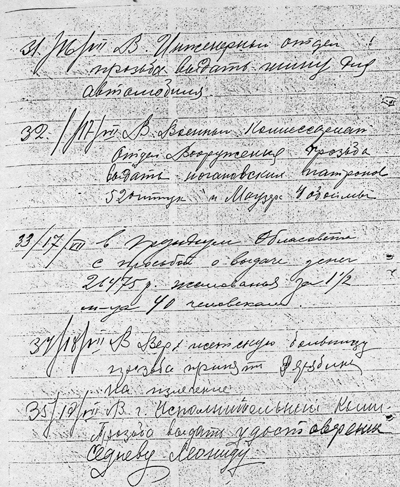 31/16/VII В Инженерный отдел
прозьба выдать шину для
автомобиля
32/17/VII В Военный Комиссариат
отдел Вооружения прозьба
выдать нагановский патронов
520 штук и Маузер 4 обоймы
33/17/VII в Президиум Облсовета
с прозьбой о выдаче денег
26475 р. жалования за 1/2
м-ца 40 человекам
34/18/VII В Верхисетскую больницу
прозьба принять
на излечение
35/19/VII В г. Исполнительный Коми-
Прозьба выдать удостоверение
Седневу Леониду